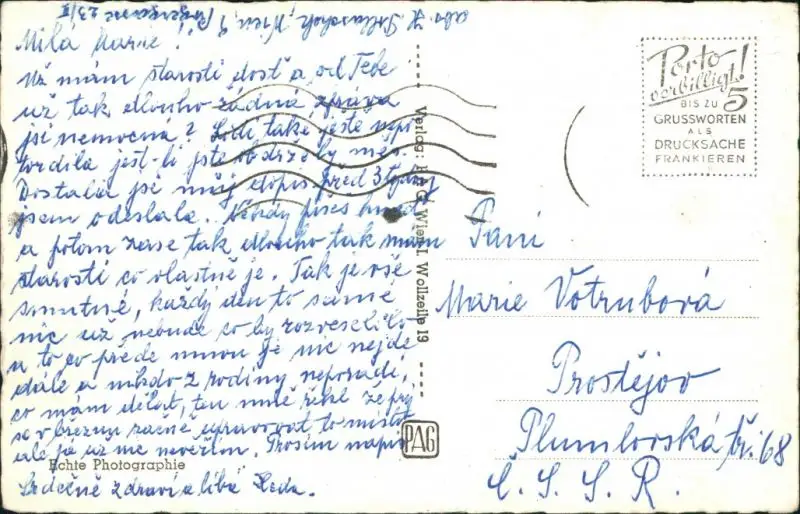 Milá Marie!
Už mám starosti dost a od Tebe
už tak dlouho žádná zpráva
jsi nemocná? Lodi také ještě nepo
tvrdila jest-li jste obdržely
Dostala jsi můj dopis před 3 týdny
jsem odeslala. Někdy píšeš hned
a potom zase tak dlouho tak mám
starosti co vlastně je. Tak je vše
smutné, každý den to samé
nic už nebude co by rozveselilo
a to co přede mnou je nic nejde
dále a nikdo z rodiny neporadí,
co mám dělat, ten mně řekl že prý
se v březnu začne upravovat to místo
ale já už mu nevěřím. Prosím napiš
Srdečně zdraví a líbá
abs.
Wien
Porto
verbilligt!
BIS ZU
5
GRUSSWORTEN
ALS
DRUCKSACHE
FRANKIEREN
Verlag: Wien I Wollzeile 19
PAG
Echte Photographie
Paní
Marie Votrubová
Prostějov
Plumlovská tř. 68
Č. S. S. R.